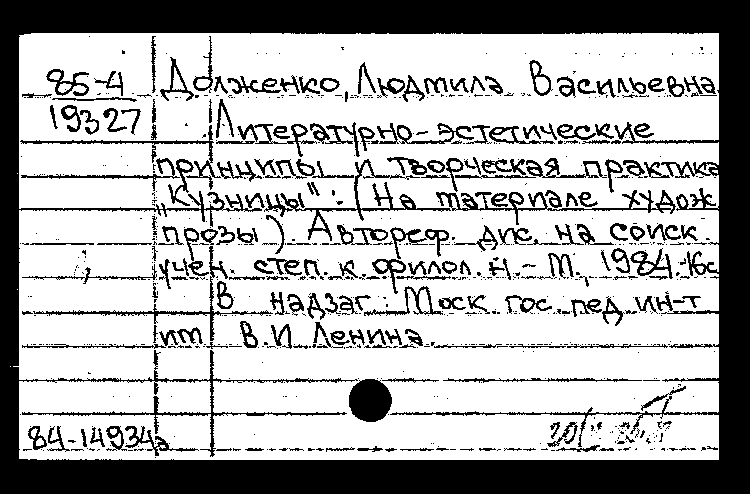 85-4
19327
Долженко, Людмила Васильевна
Литературно-эстетические
принципы и творческая практика
„Кузницы": (На материале худож
прозы). Автореф. дис. на соиск.
учен. степ. к. филол. н. - М., 1984.-16с
В надзаг.: Моск. гос. пед. ин-т
им В.И Ленина.
84-14934а